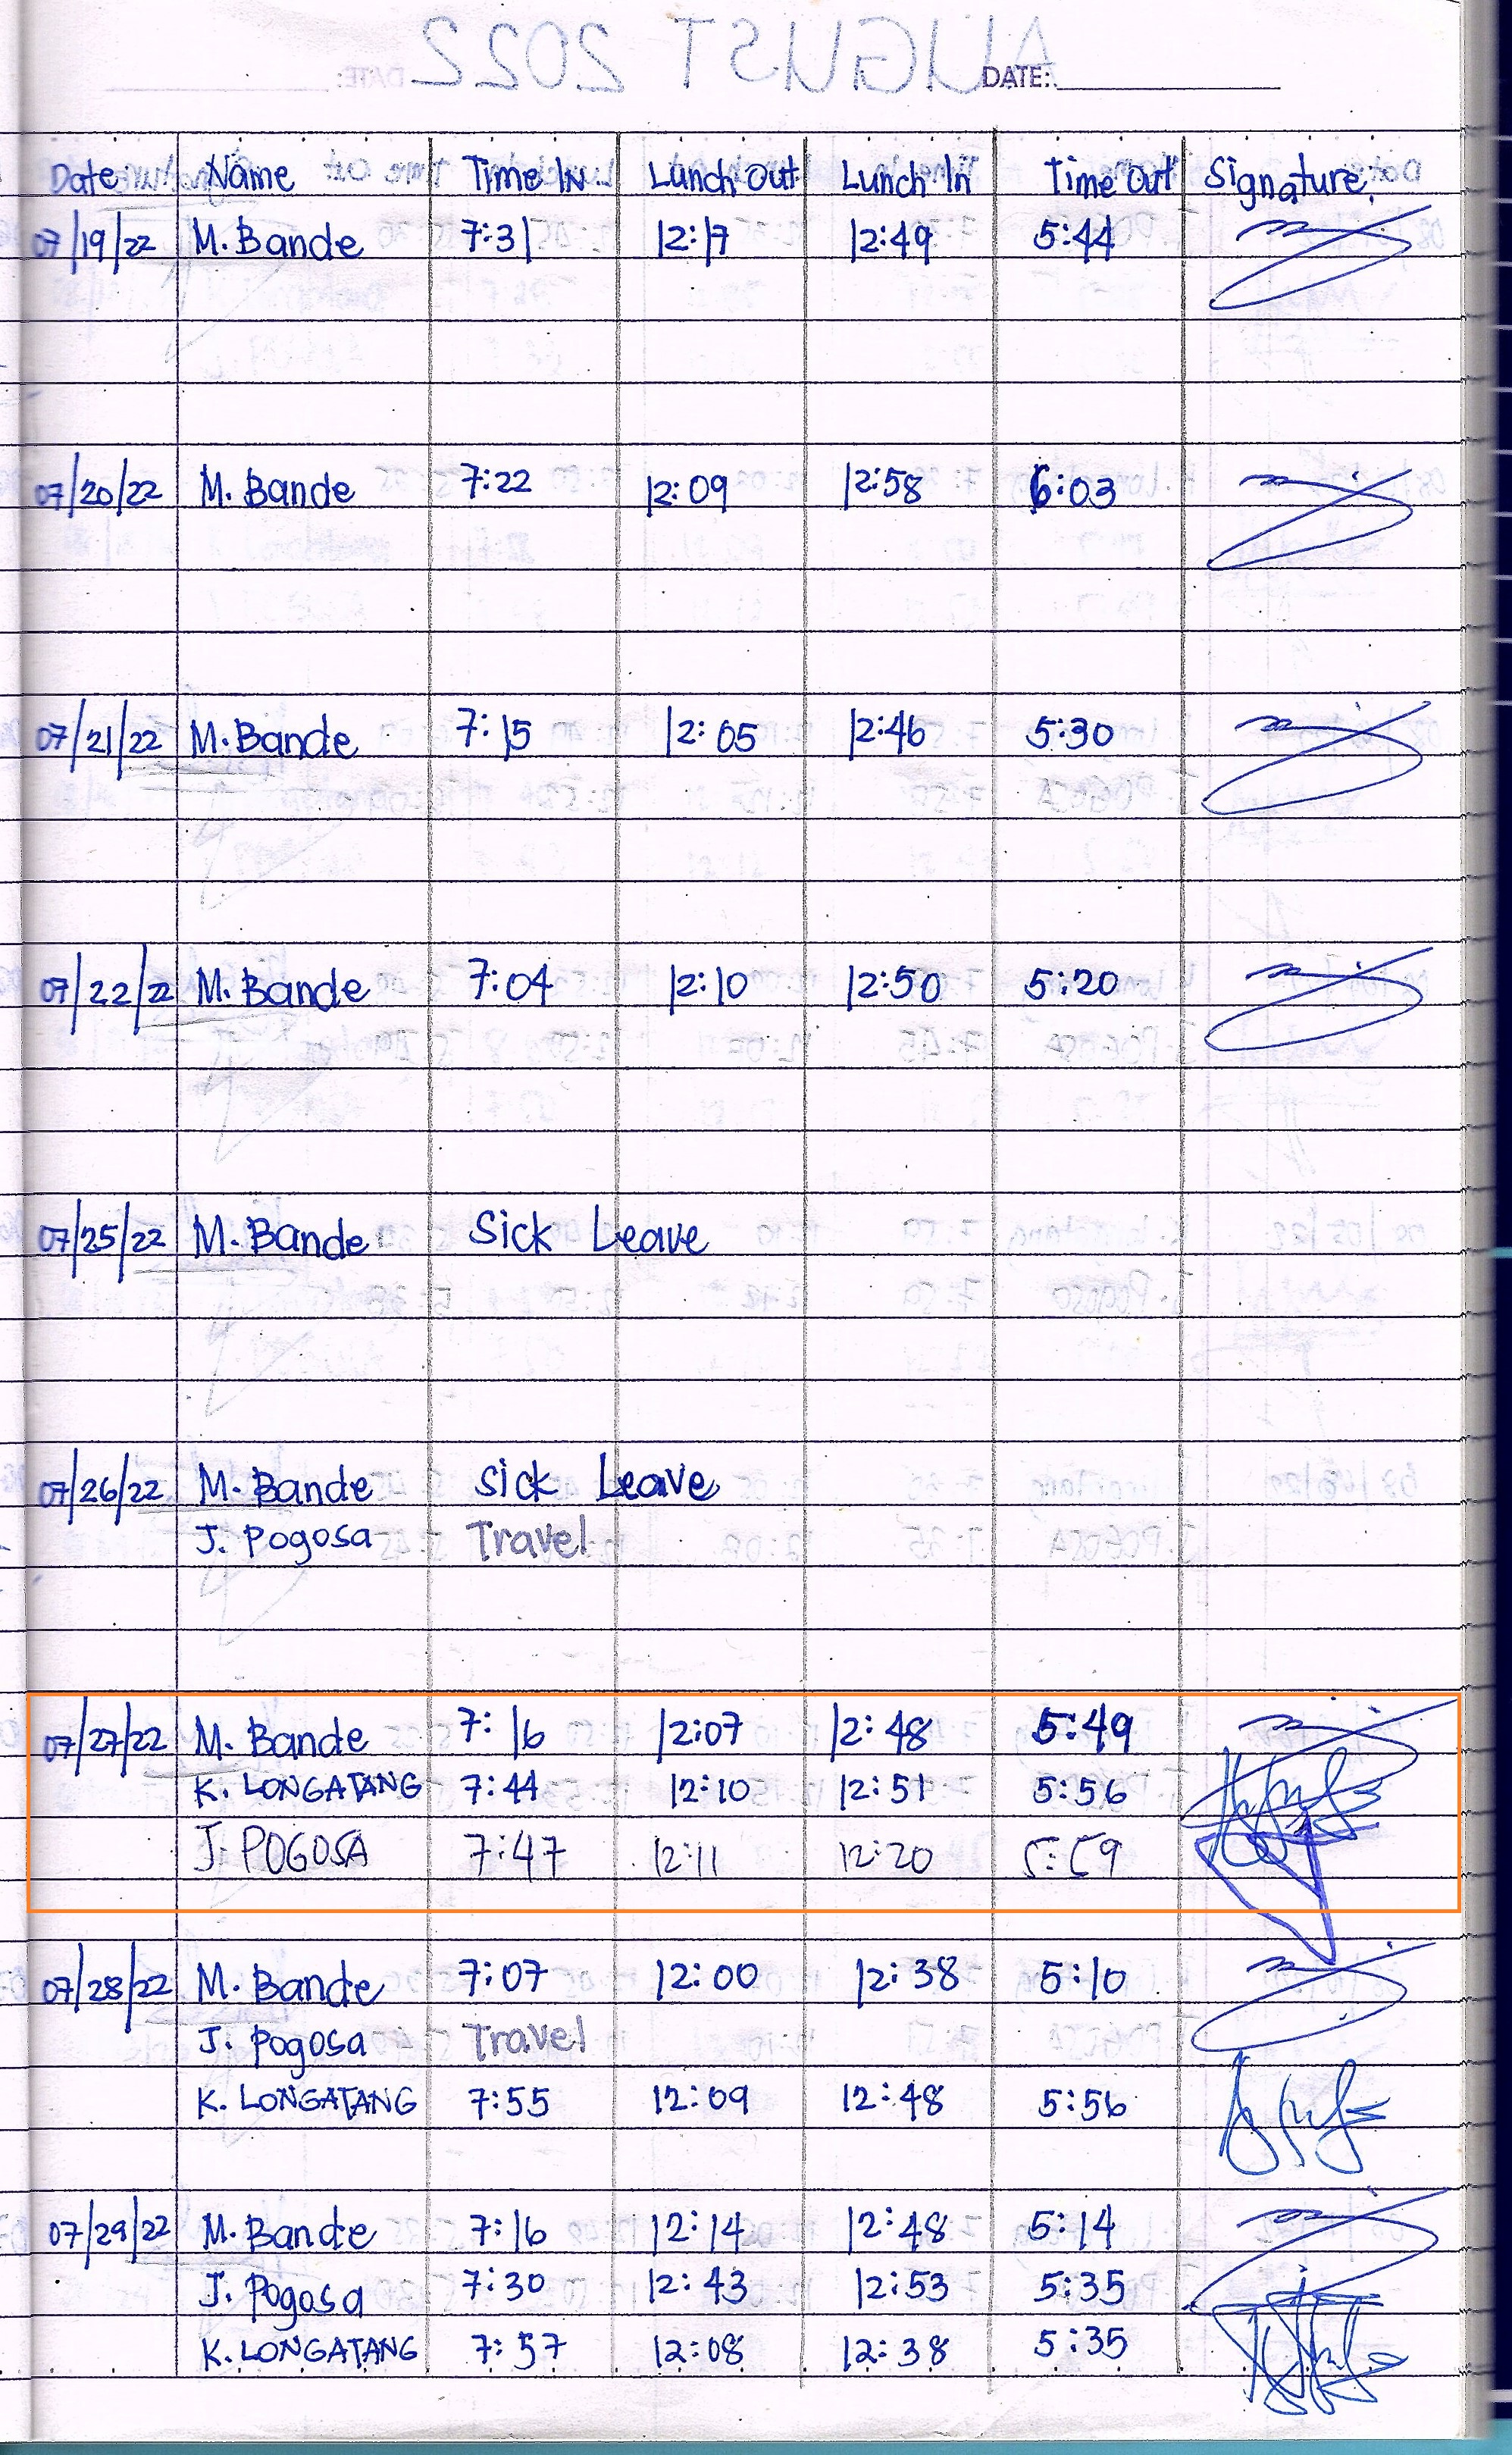 DATE:
Date Name Time IN Lunch Out Lunch In Time Out Signature
07/19/22 M. Bande 7:31 12:17 12:49 5:44
07/20/22 M. Bande 7:22 12:09 12:58 6:03
07/21/22 M. Bande 7:15 12:05 12:46 5:30
07/22/22 M. Bande 7:04 12:10 12:50 5:20
07/25/22 M. Bande Sick Leave
07/26/22 M. Bande Sick Leave
J. Pogosa Travel
07/27/22 M. Bande 7:16 12:07 12:48 5:49
K. LONGATANG 7:44 12:10 12:51 5:56
J. POGOSA 7:47 12:11 12:20 5:59
07/28/22 M. Bande 7:07 12:00 12:38 5:10
J. Pogosa Travel
K. LONGATANG 7:55 12:09 12:48 5:56
07/29/22 M. Bande 7:16 12:14 12:48 5:14
J. Pogosa 7:30 12:43 12:53 5:35
K. LONGATANG 7:57 12:08 12:38 5:35